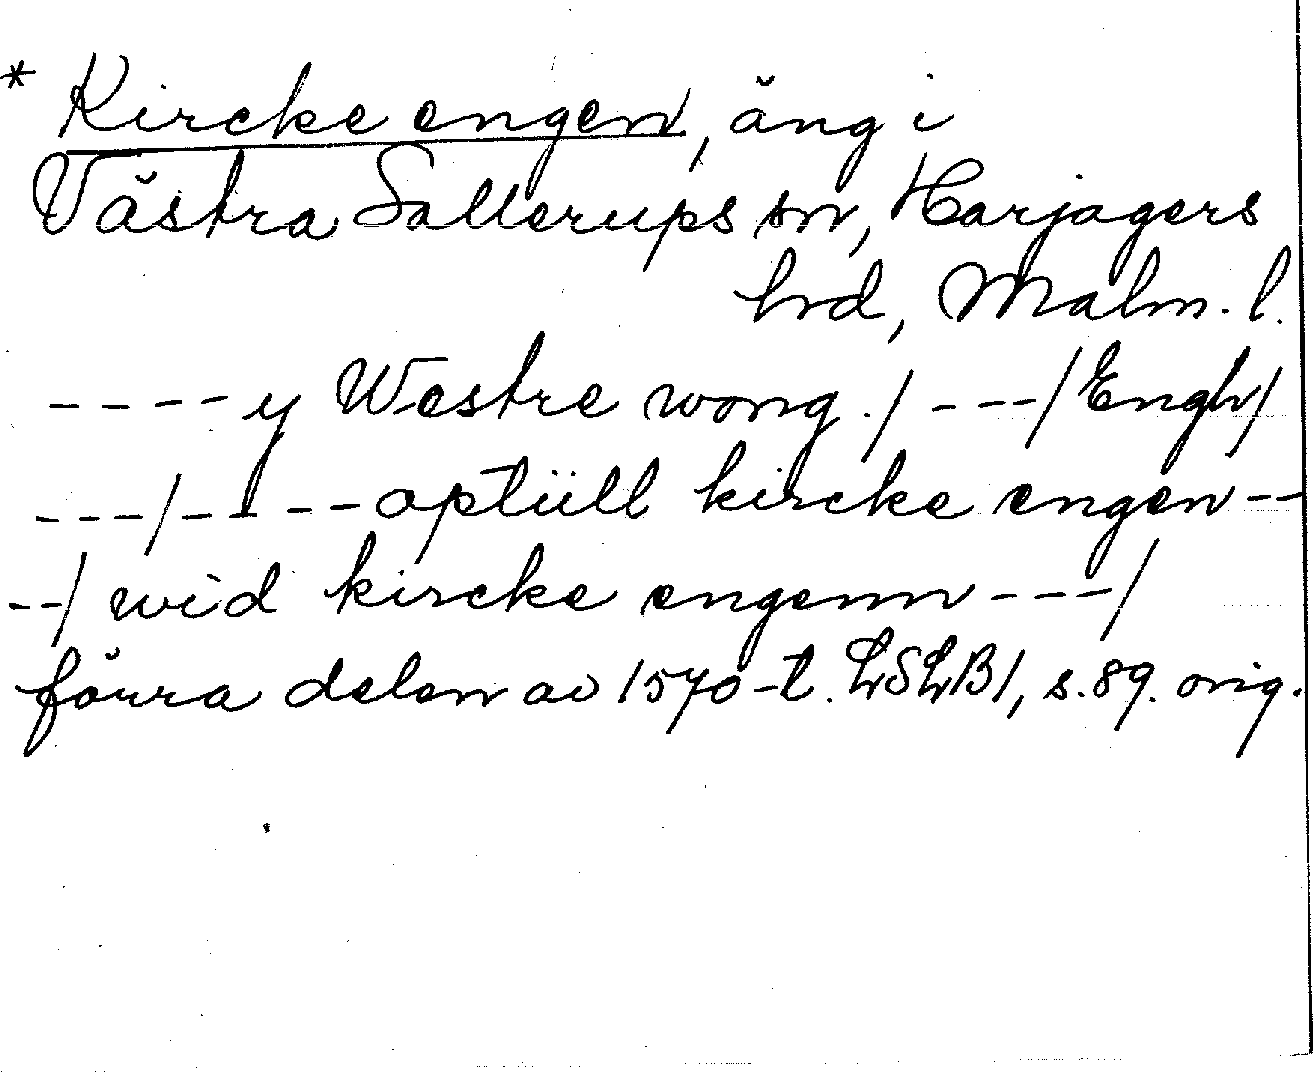 * Kircke engen, äng i
Västra Sallerups sn, Harjagers
hrd, Malm. l.
---- y Westre wong ./ ---/ Engh/
---/---- optüll kircke engen --
--/ wid kircke engenn ---/
förra delen av 1570-t. LSLB1, s. 89. orig.